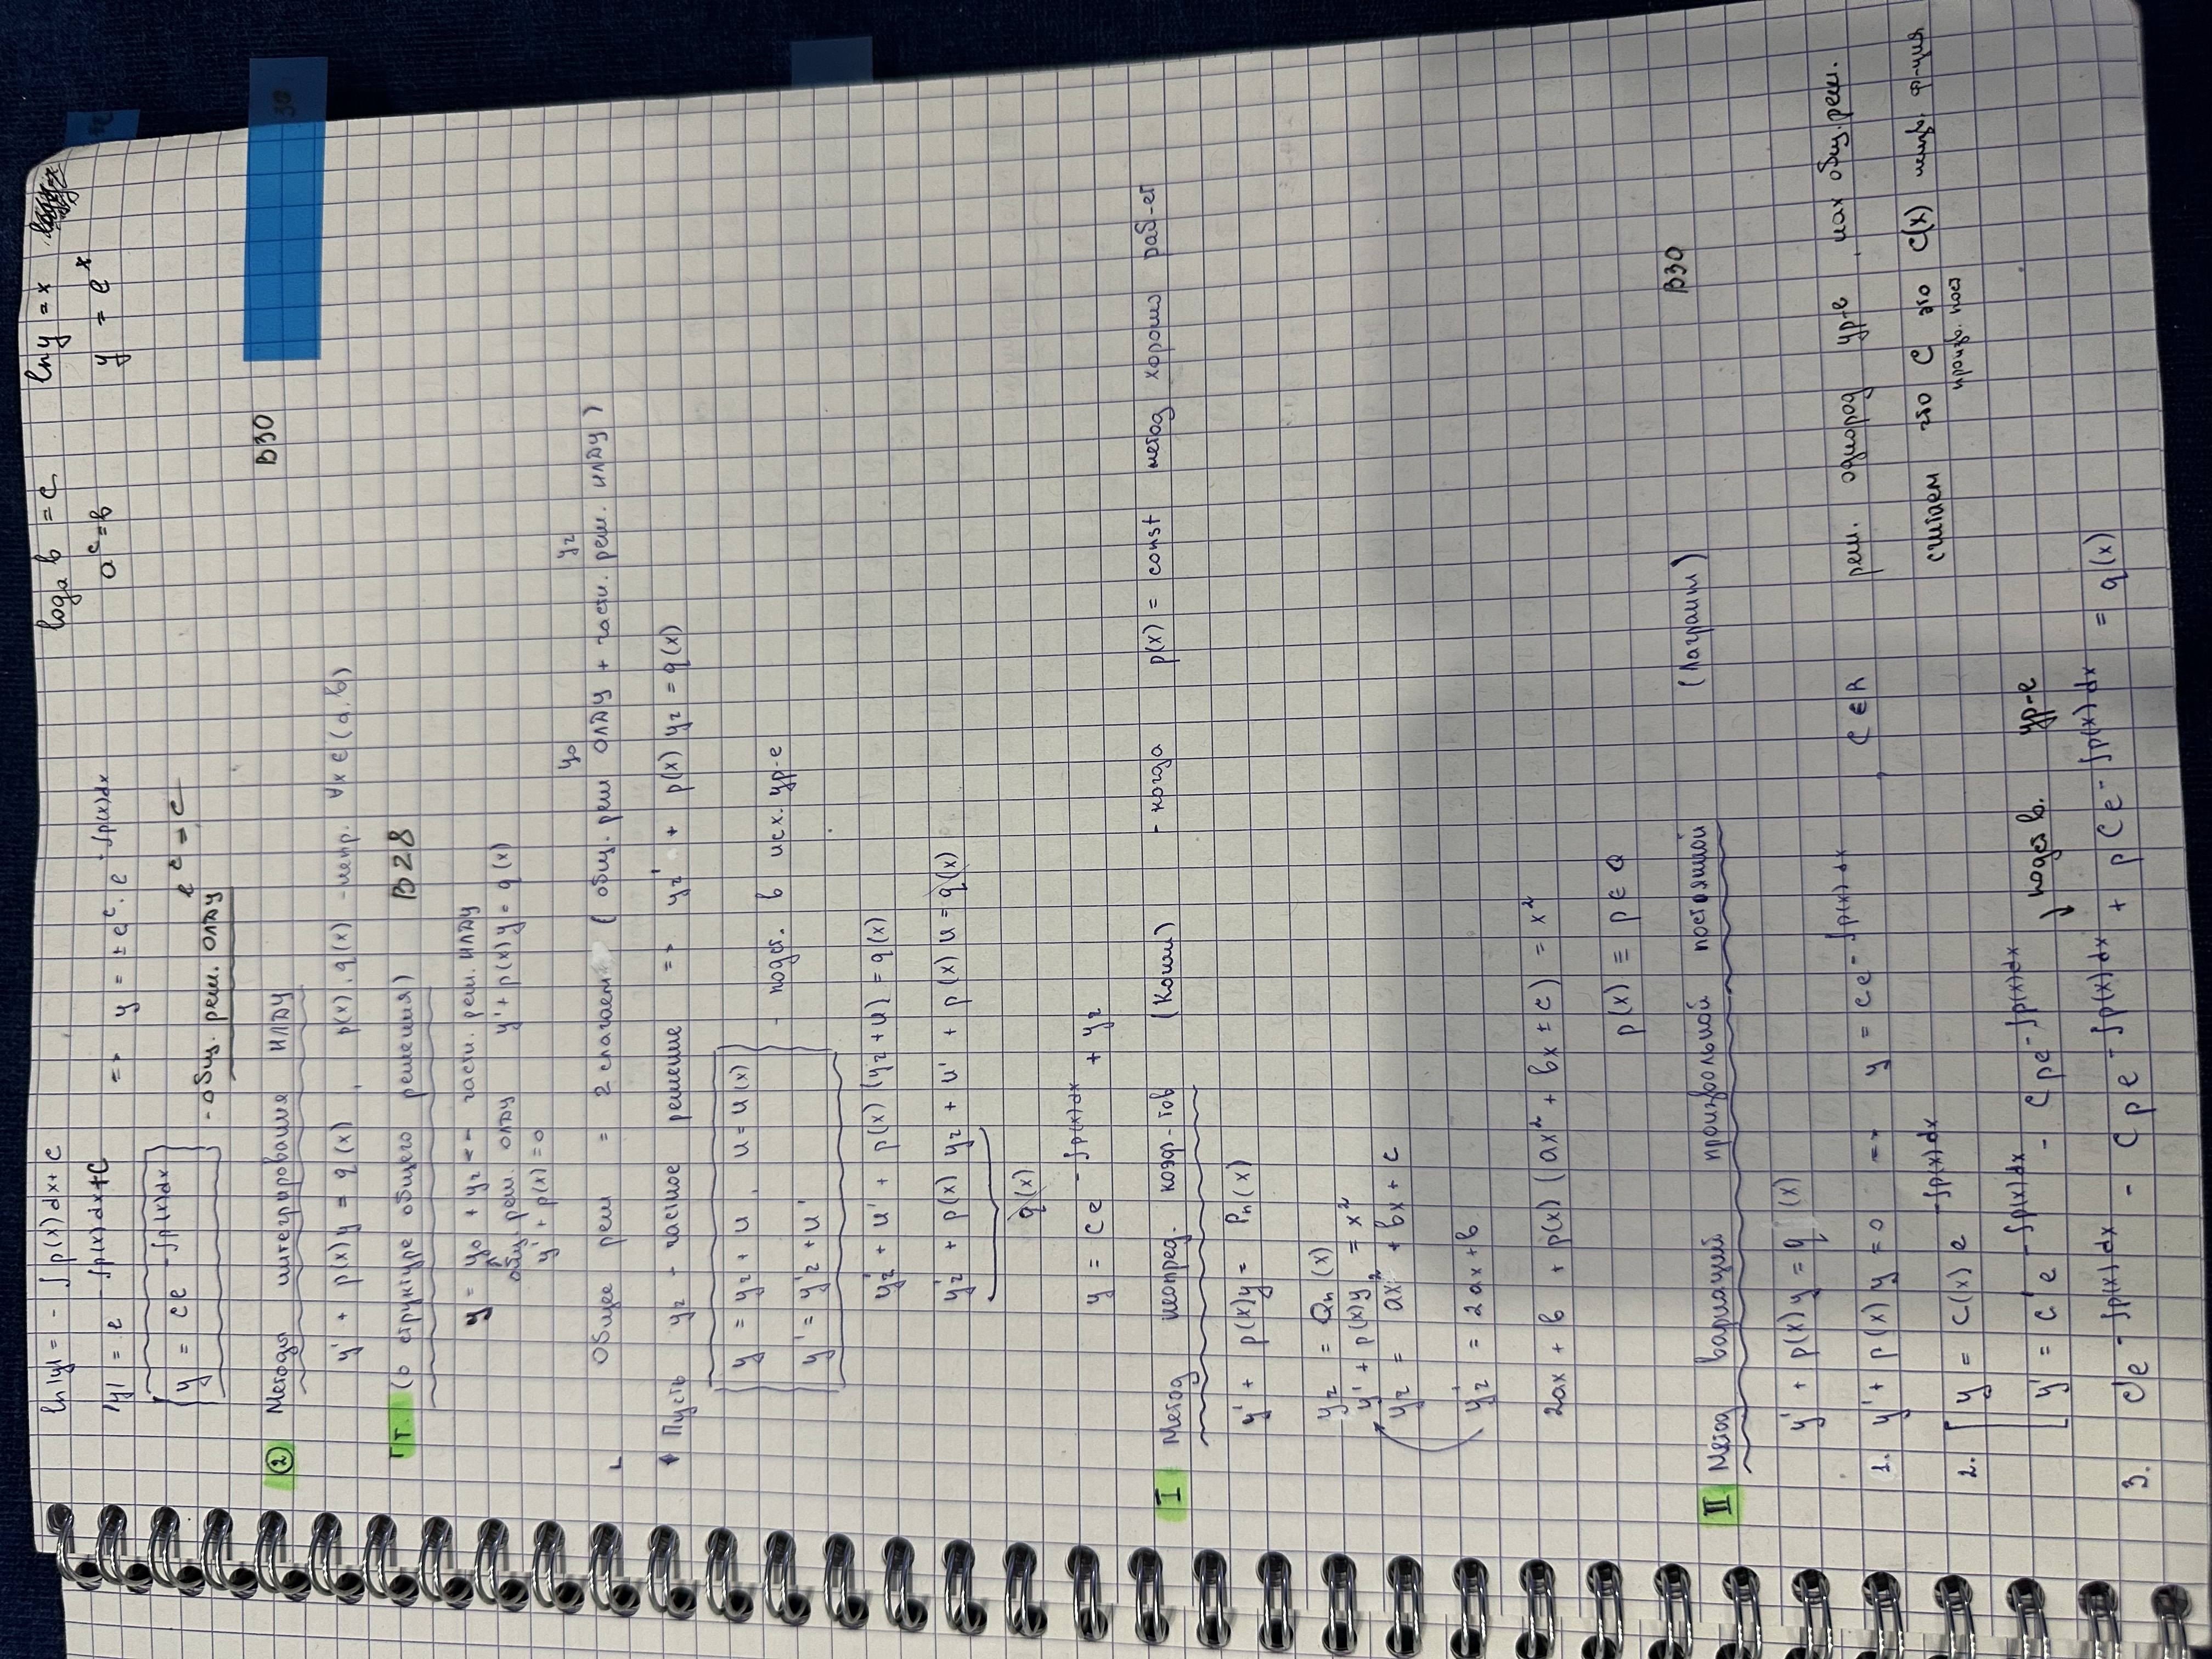 ln|y| = - ∫ p(x) dx + C
log_a b = c
ln y = x
|y| = e^{-∫p(x)dx+C} => y = ± e^c · e^{-∫p(x)dx}
a^c = b
y = e^x
y = ce^{-∫p(x)dx}
e^c = c
- общ. реш. ОЛДУ
② Методы интегрирования НЛДУ
В30
y' + p(x)y = q(x), p(x), q(x) - непр. ∀x∈(a,b)
Т. (о структуре общего решения) В28
y = y₀ + yч <-- частн. реш. НЛДУ
общ. реш. ОЛДУ y' + p(x)y = q(x)
y' + p(x) = 0
y₀ yч
Общее реш = 2 слагаем (общ. реш ОЛДУ + частн. реш. НЛДУ)
Пусть yч - частное решение => yч' + p(x) yч = q(x)
y = yч + u, u = u(x)
- подст. в исх. ур-е
y' = y'ч + u'
y'ч + u' + p(x) (yч + u) = q(x)
y'ч + p(x) yч + u' + p(x) u = q(x)
q(x)
y = ce^{-∫p(x)dx} + yч
I Метод неопред. коэф-тов (Коши) - когда p(x) = const метод хорошо раб-ет
y' + p(x)y = Pn(x)
yч = Qn(x)
y' + p(x)y = x²
yч = ax² + bx + c
y'ч = 2ax + b
2ax + b + p(x) (ax² + bx ± c) = x²
p(x) ≡ p ∈ Q
II Метод вариаций произвольной постоянной (Лагранж)
В30
y' + p(x)y = q(x)
1. y' + p(x)y = 0 => y = ce^{-∫p(x)dx}, C∈R реш. однород ур-е, нах общ. реш.
считаем что C это C(x) неизв. ф-ция
произв. пост
2. y = C(x) e^{-∫p(x)dx}
y' = C'e^{-∫p(x)dx} - Cpe^{-∫p(x)dx}
↓ подст в. ур-е
3. C'e^{-∫p(x)dx} - Cpe^{-∫p(x)dx} + pCe^{-∫p(x)dx} = q(x)